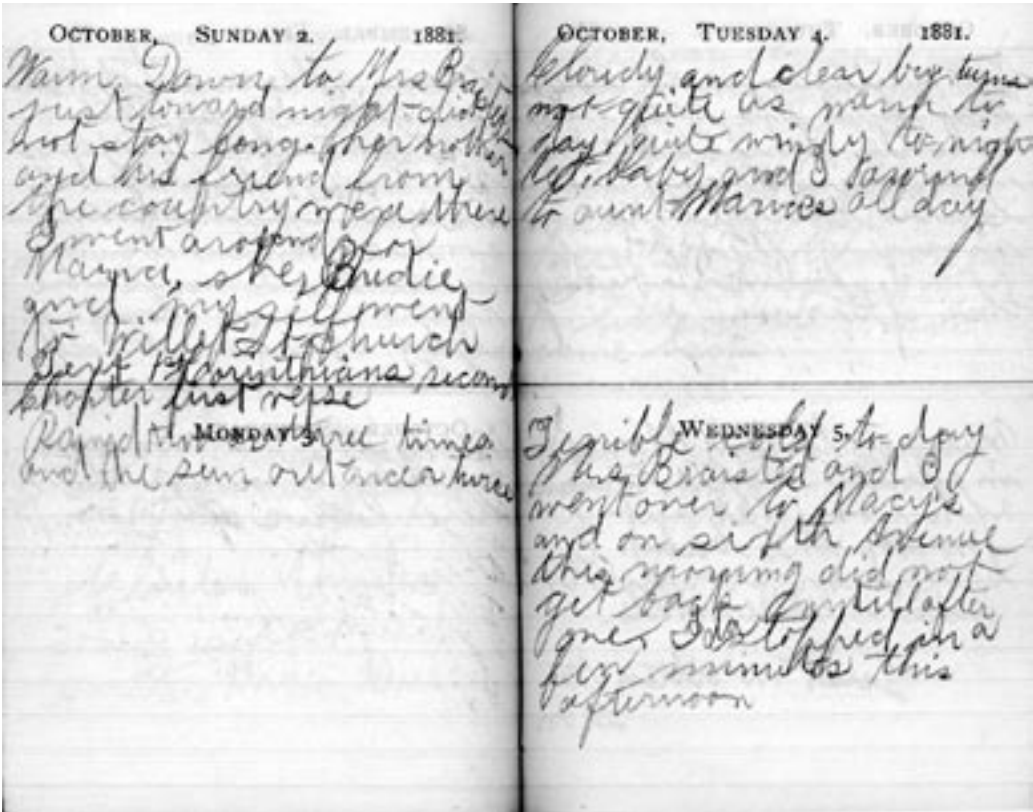 OCTOBER, SUNDAY 2. 1881.
Warm. Down to Mrs
just toward night did
not stay long. her mother
and his friend from
the country were there
I went around for
Mamie, she, Birdie
and my self went
to Willet St church
text 1st Corinthians second
Chapter first verse
MONDAY 3.
Rained two or three times
and the sun out once or twice
OCTOBER, TUESDAY 4. 1881.
Cloudy and clear by turns
not quite as warm to
day quite windy to nigh
baby and I around
to aunt all day
WEDNESDAY 5.
Terrible cold to-day
Mrs. Braisted and I
went over to Macy's
and on sixth Avenue
this morning did not
get back untill after
one. stopped in a
few minutes this
afternoon